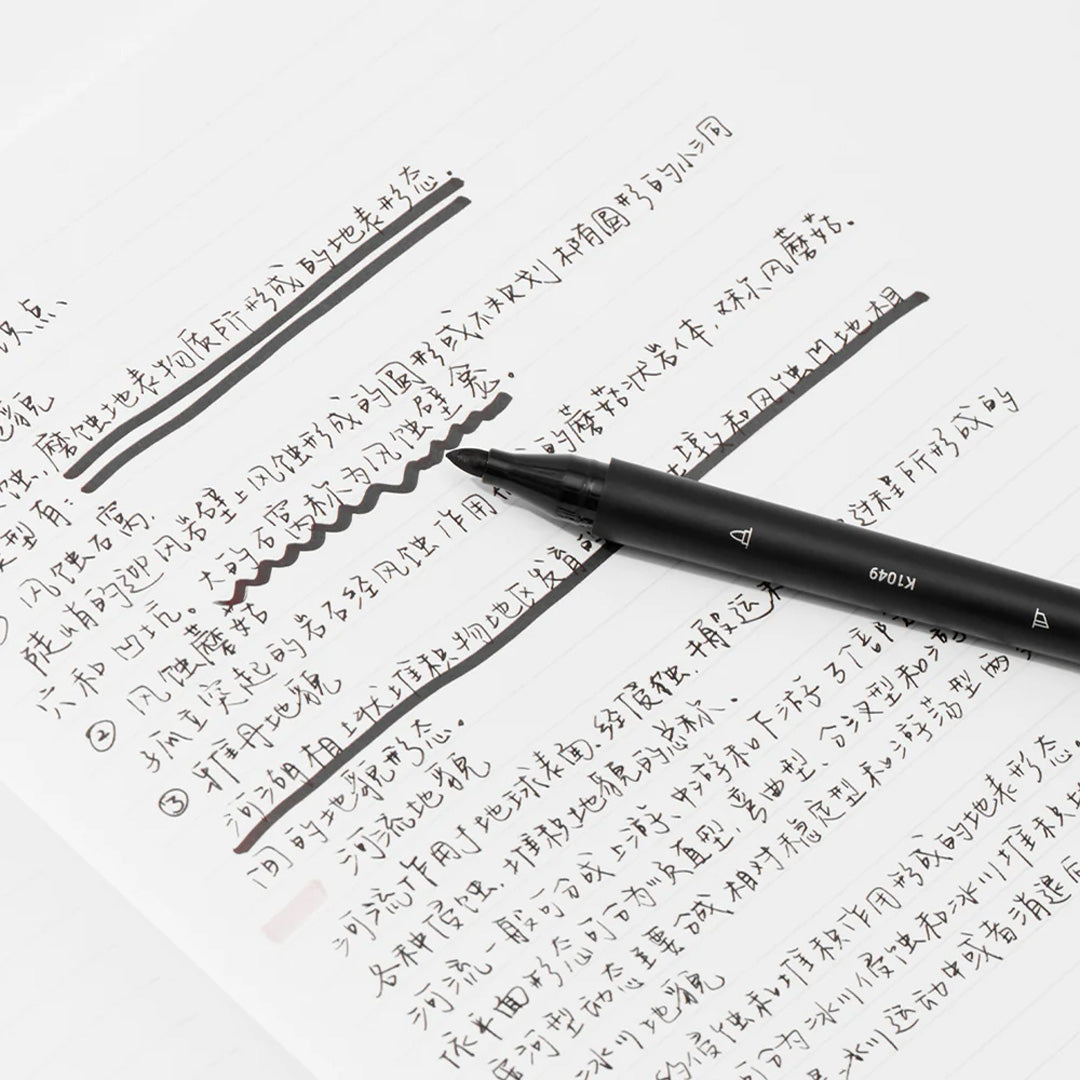 识点、
地貌
蚀,磨蚀地表物质所形成的地表形态.
类型有:
风蚀石窝.
陡峭的迎风岩壁上风蚀形成的圆形或不规则椭圆形的小洞
穴和凹坑。大的石窝称为风蚀壁龛.
② 风蚀蘑菇
孤立突起的岩石经风蚀作用 的蘑菇状岩体,又称风蘑菇.
③ 雅丹地貌
河湖相土状堆积物地区发育的 土墩和风蚀凹地相
间的地貌形态.
河流地貌
河流作用于地球表面.经侵蚀.搬运和 过程所形成的
各种侵蚀.堆积地貌的总称.
河流一般可分成上游、中游和下游3个
依平面形态可分为顺直型,弯曲型、分汊型和
河型动态主要分成相对稳定型和游荡型两
冰川地貌
的侵蚀和堆积作用形成的地表形态.
可分为冰川侵蚀和冰川堆积
冰川运动中或者消退后
K1049